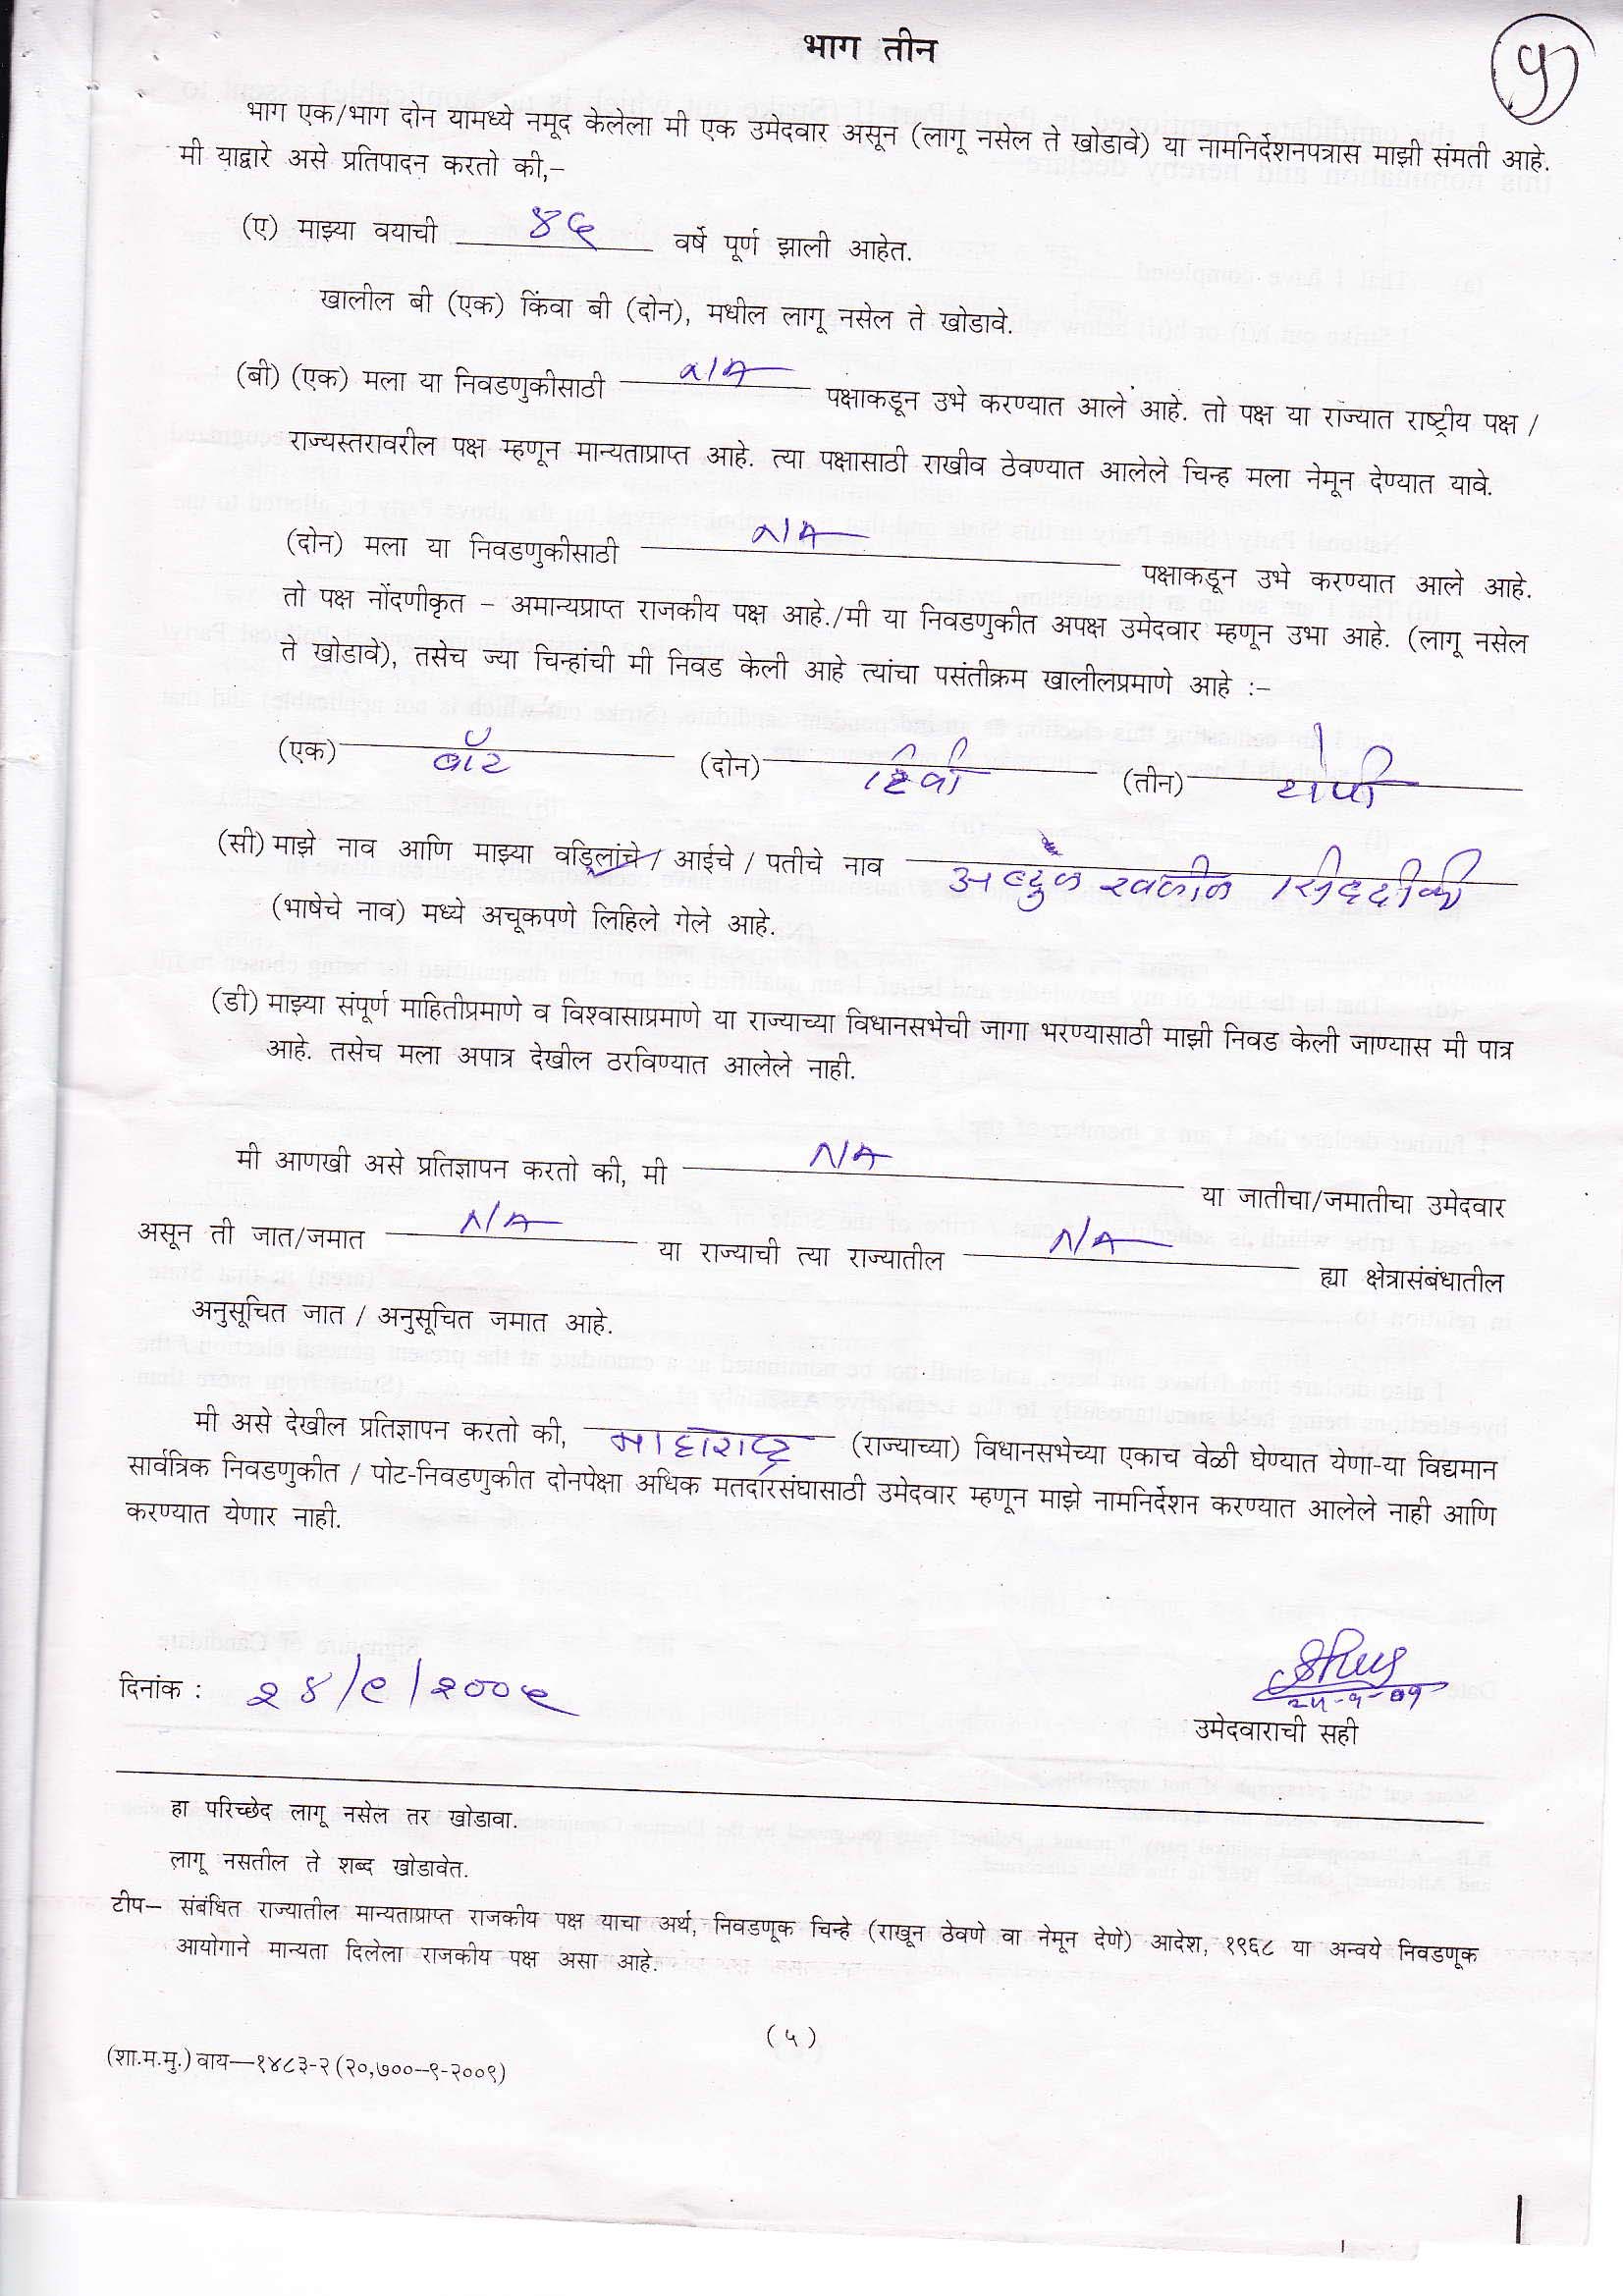 भाग तीन
५
भाग एक/भाग दोन यामध्ये नमूद केलेला मी एक उमेदवार असून (लागू नसेल ते खोडावे) या नामनिर्देशनपत्रास माझी संमती आहे.
मी याद्वारे असे प्रतिपादन करतो की,–
(ए) माझ्या वयाची ४६ वर्षे पूर्ण झाली आहेत.
खालील बी (एक) किंवा बी (दोन), मधील लागू नसेल ते खोडावे.
(बी) (एक) मला या निवडणुकीसाठी N/A पक्षाकडून उभे करण्यात आले आहे. तो पक्ष या राज्यात राष्ट्रीय पक्ष /
राज्यस्तरावरील पक्ष म्हणून मान्यताप्राप्त आहे. त्या पक्षासाठी राखीव ठेवण्यात आलेले चिन्ह मला नेमून देण्यात यावे.
(दोन) मला या निवडणुकीसाठी N/A पक्षाकडून उभे करण्यात आले आहे.
तो पक्ष नोंदणीकृत – अमान्यप्राप्त राजकीय पक्ष आहे./मी या निवडणुकीत अपक्ष उमेदवार म्हणून उभा आहे. (लागू नसेल
ते खोडावे), तसेच ज्या चिन्हांची मी निवड केली आहे त्यांचा पसंतीक्रम खालीलप्रमाणे आहे :–
(एक) बॅट (दोन) टिव्ही (तीन) टोपी
(सी) माझे नाव आणि माझ्या वडिलांचे / आईचे / पतीचे नाव अब्दुल खलील सिद्दीकी
(भाषेचे नाव) मध्ये अचूकपणे लिहिले गेले आहे.
(डी) माझ्या संपूर्ण माहितीप्रमाणे व विश्वासाप्रमाणे या राज्याच्या विधानसभेची जागा भरण्यासाठी माझी निवड केली जाण्यास मी पात्र
आहे. तसेच मला अपात्र देखील ठरविण्यात आलेले नाही.
मी आणखी असे प्रतिज्ञापन करतो की, मी N/A या जातीचा/जमातीचा उमेदवार
असून ती जात/जमात N/A या राज्याची त्या राज्यातील N/A ह्या क्षेत्रासंबंधातील
अनुसूचित जात / अनुसूचित जमात आहे.
मी असे देखील प्रतिज्ञापन करतो की, माहाराष्ट्र (राज्याच्या) विधानसभेच्या एकाच वेळी घेण्यात येणा-या विद्यमान
सार्वत्रिक निवडणुकीत / पोट-निवडणुकीत दोनपेक्षा अधिक मतदारसंघासाठी उमेदवार म्हणून माझे नामनिर्देशन करण्यात आलेले नाही आणि
करण्यात येणार नाही.
दिनांक : २४/९/२००९
उमेदवाराची सही
हा परिच्छेद लागू नसेल तर खोडावा.
लागू नसतील ते शब्द खोडावेत.
टीप— संबंधित राज्यातील मान्यताप्राप्त राजकीय पक्ष याचा अर्थ, निवडणूक चिन्हे (राखून ठेवणे वा नेमून देणे) आदेश, १९६८ या अन्वये निवडणूक
आयोगाने मान्यता दिलेला राजकीय पक्ष असा आहे.
(५)
(शा.म.मु.) वाय—१४८३-२ (२०,७००--९-२००९)